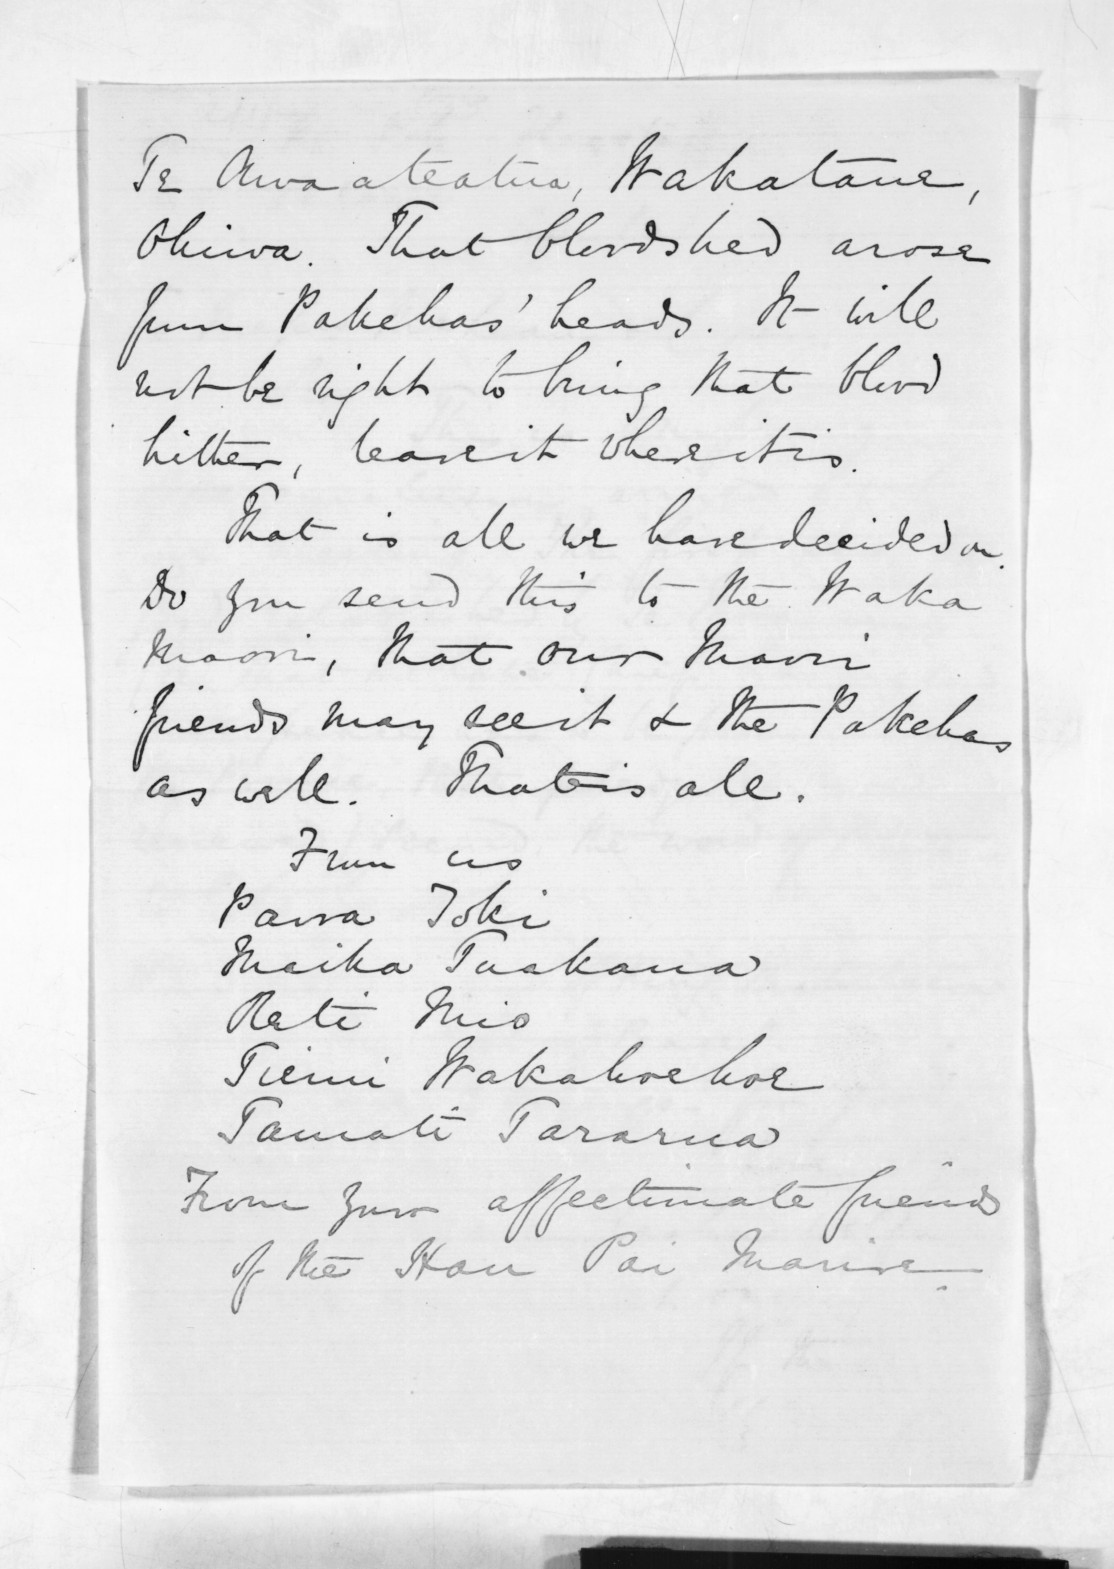 Te Awa ateatua, Wakatane,
Ohiwa. That bloodshed arose
from Pakehas' heads. It will
not be right to bring that blood
hither, leave it where it is.
That is all we have decided on.
Do you send this to the Waka
Maori, that our Maori
friends may see it & the Pakehas
as well. That is all.
From us
Paora Toki
Maika Tuakana
Reti Mio
Tiemi Wakahoehoe
Tamati Tararua
From your affectionate friends
of the Hau Pai Marire.